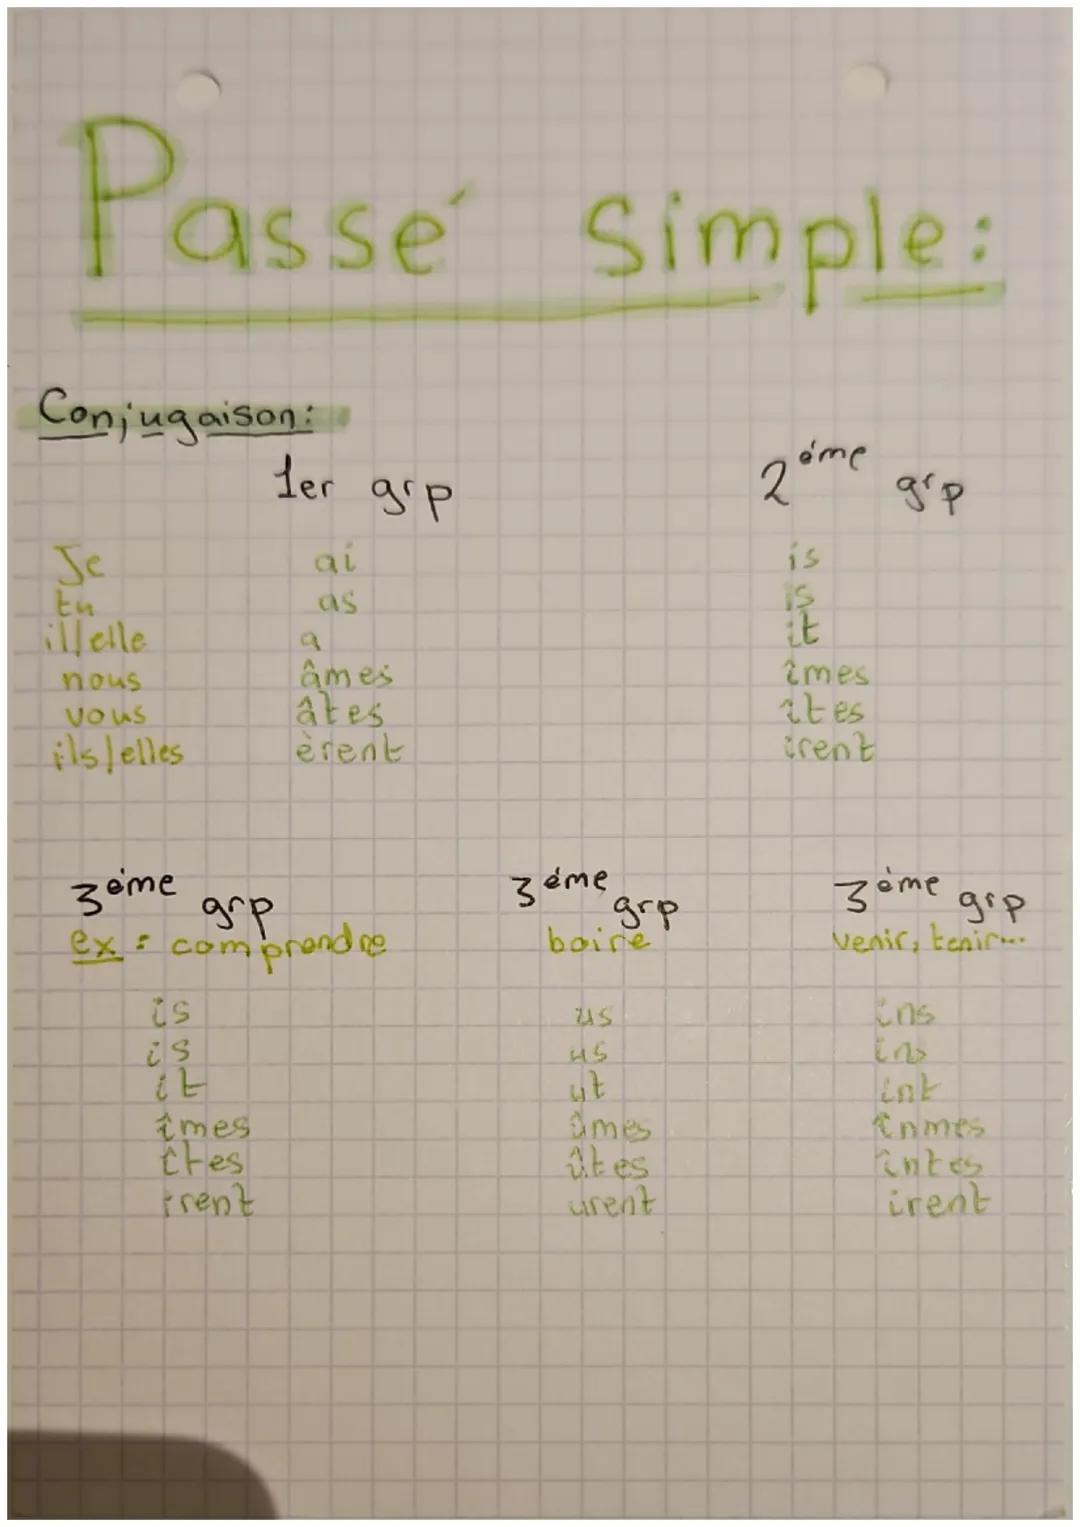 Passé simple:
Conjugaison:
1er grp 2ème grp
Je ai is
tu as is
il/elle a it
nous âmes îmes
vous âtes îtes
ils/elles èrent irent
3ème grp 3ème grp 3ème grp
ex : comprendre boire venir, tenir...
is us ins
is us ins
it ut int
îmes ûmes înmes
îtes ûtes întes
irent urent irent